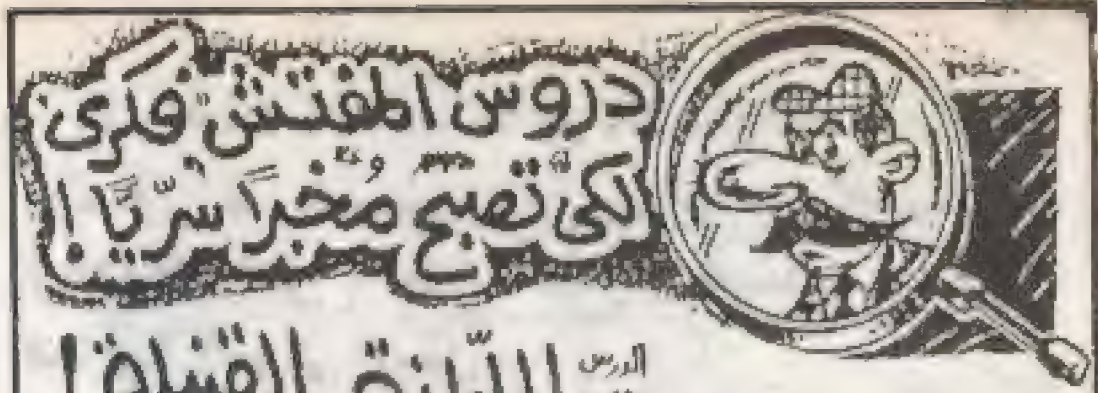 دروس المفتش فكرى
لكى تصبح مُخبرًا سرّيًا!
الدرس
القناة!